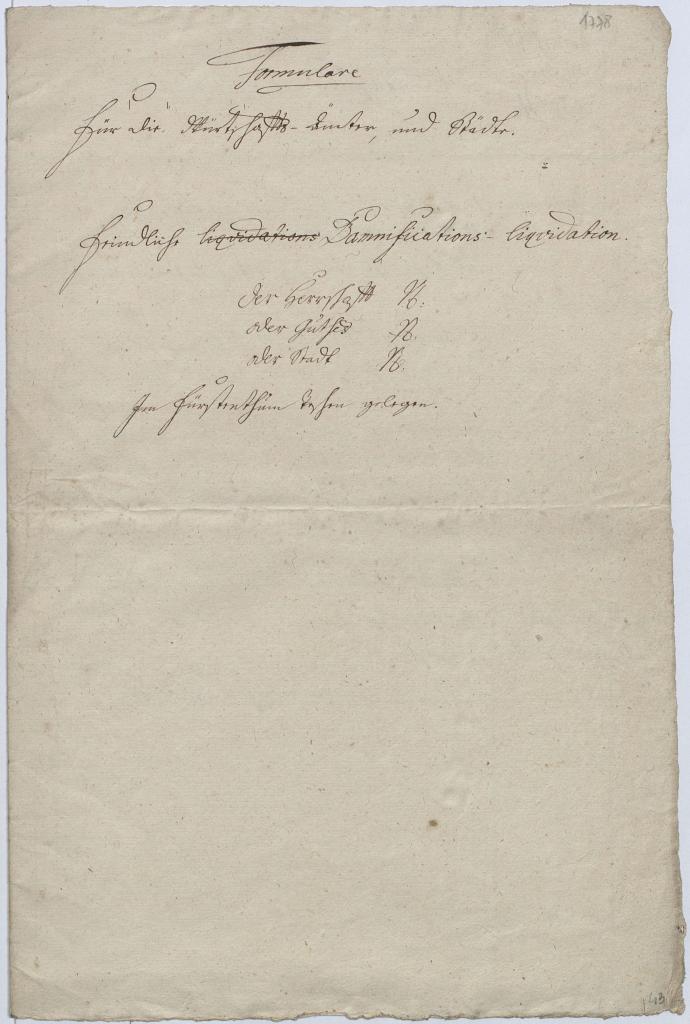 1778
Formulare
Für die Würtschaffts-Ämter, und Städte.
Feindliche liquidations Damnifications-liquidation.
der Herrschafft N:
oder Guthes N.
oder Stadt N.
Im Fürstenthum Teschen gelegen.